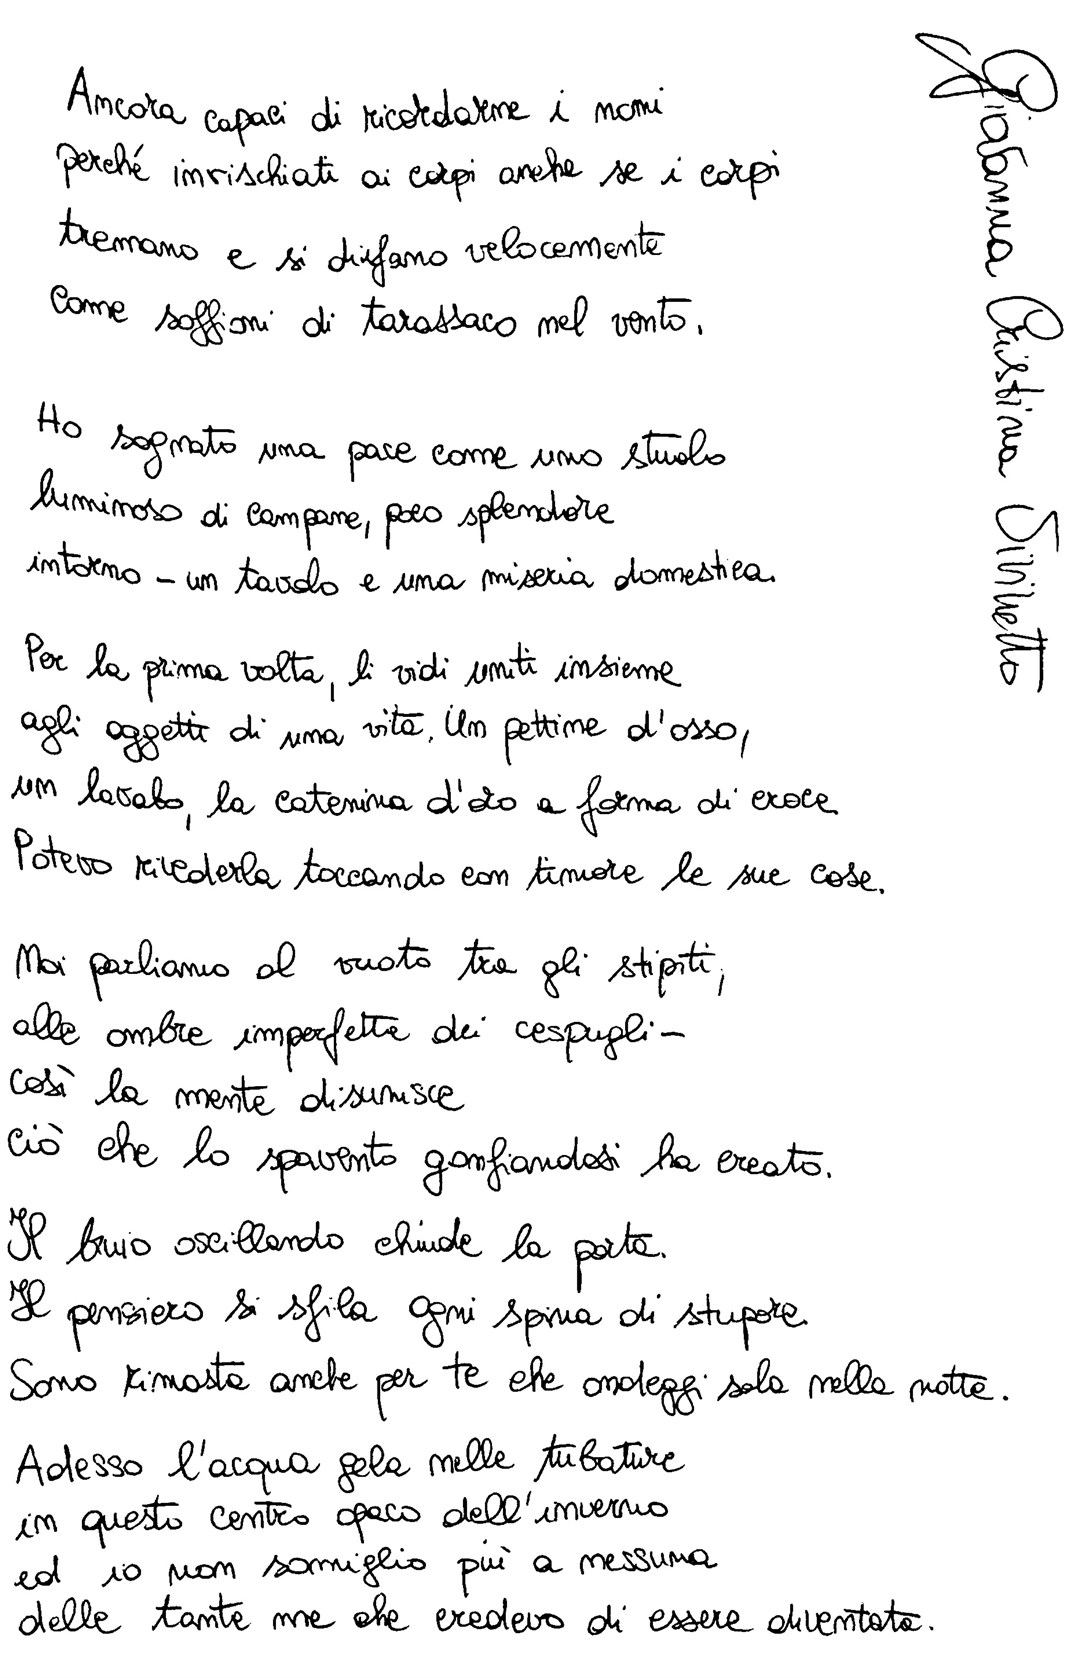 Ancora capaci di ricordarne i nomi
perché invischiati ai corpi anche se i corpi
tremano e si disfano velocemente
come soffioni di tarassaco nel vento.
Ho sognato una pace come uno stuolo
luminoso di campane, poco splendore
intorno – un tavolo e una miseria domestica.
Per la prima volta, li vidi uniti insieme
agli oggetti di una vita. Un pettine d'osso,
un lavabo, la catenina d'oro a forma di croce
Potevo rivederla toccando con timore le sue cose.
Noi parliamo al vuoto tra gli stipiti,
alle ombre imperfette dei cespugli –
così la mente disunisce
ciò che lo spavento gonfiandosi ha creato.
Il buio oscillando chiude la porta.
Il pensiero si sfila ogni spina di stupore.
Sono rimasta anche per te che ondeggi sola nella notte.
Adesso l'acqua gela nelle tubature
in questo centro opaco dell'inverno
ed io non somiglio più a nessuna
delle tante me che credevo di essere diventata.
Giovanna Cristina Vivinetto